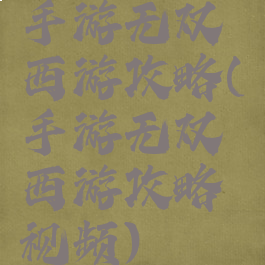 手游无双
西游攻略(
手游无双
西游攻略
视频)